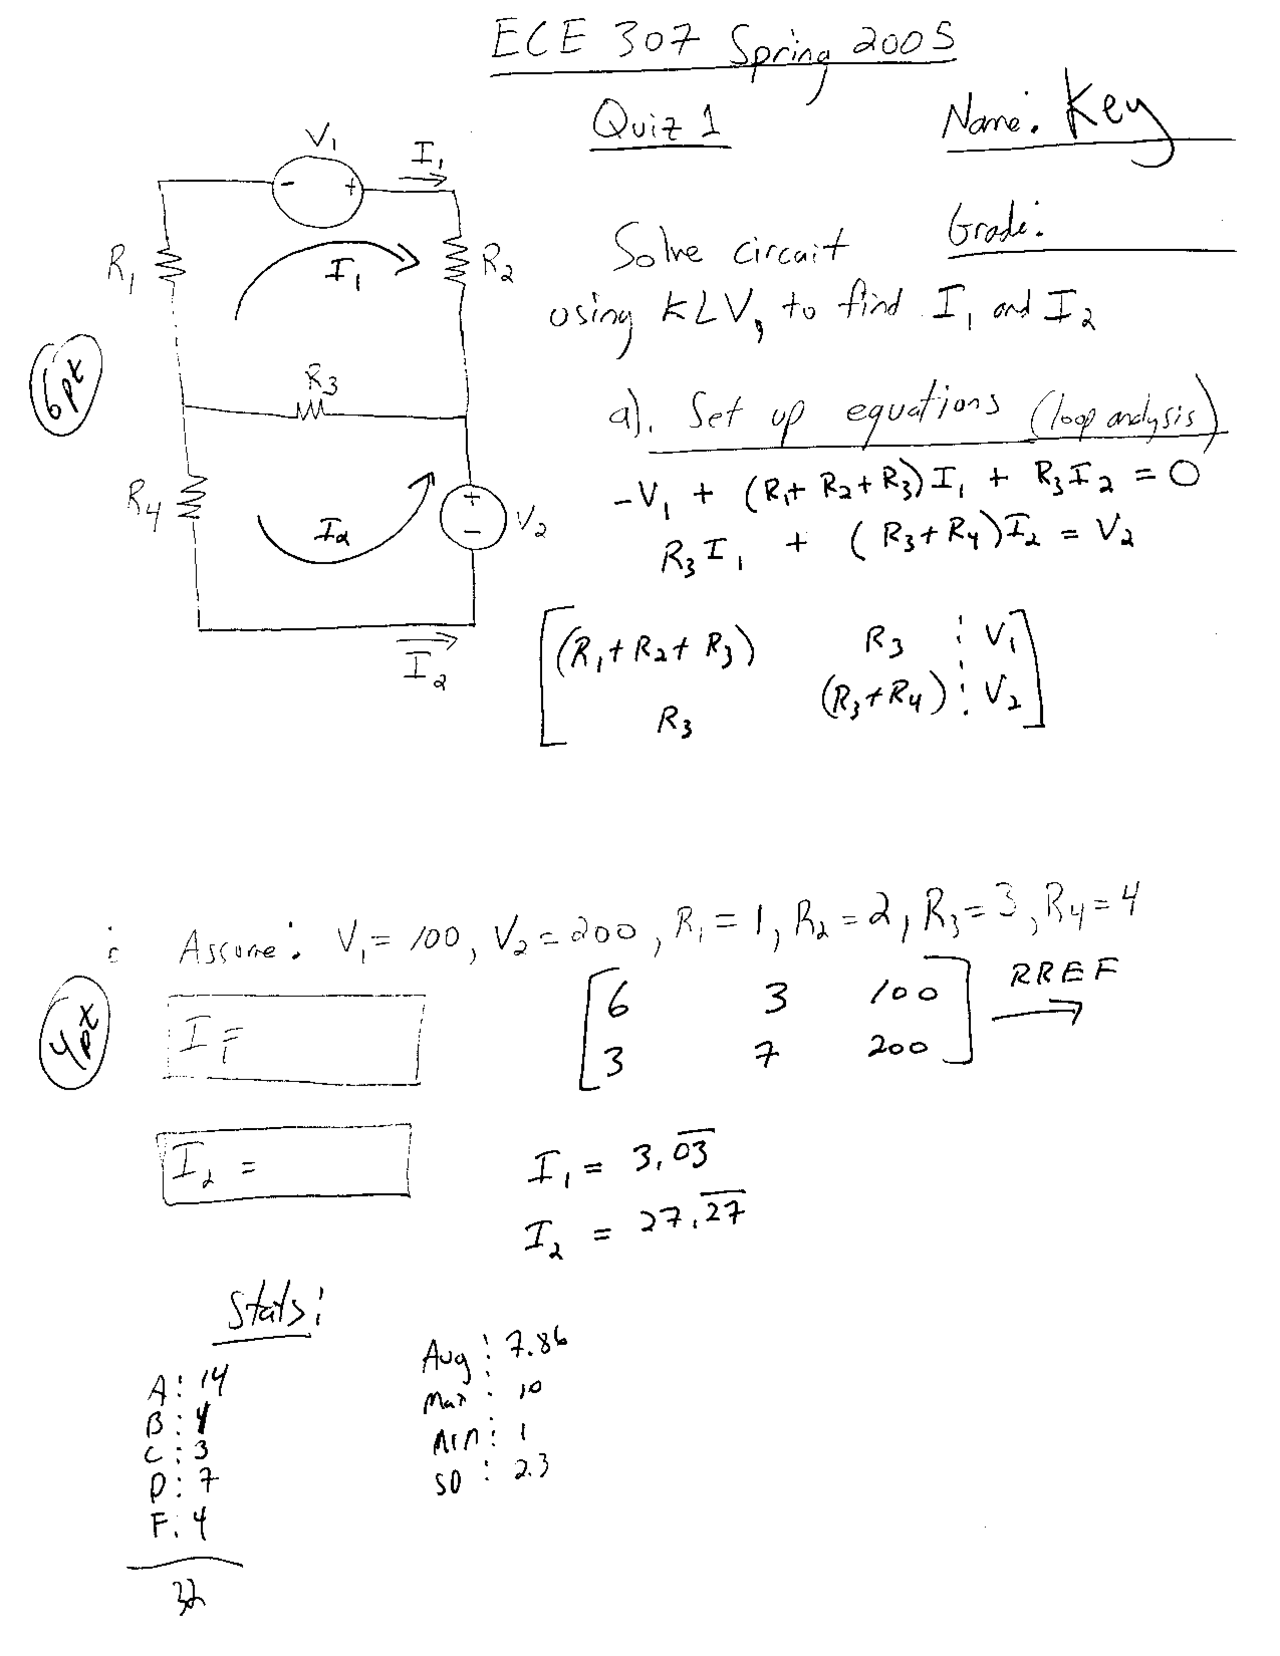 ECE 307 Spring 2005
Quiz 1
Name: Key
Grade:
V1
- +
I1
R1
I1
R2
Solve circuit
using KLV, to find I1 and I2
6pt
R3
a). Set up equations (loop analysis)
-V1 + (R1+R2+R3)I1 + R3I2 = 0
R3I1 + (R3+R4)I2 = V2
R4
I2
+
-
V2
I2
[(R1+R2+R3) R3 ⋮ V1]
[R3 (R3+R4) ⋮ V2]
Assume: V1 = 100, V2 = 200, R1 = 1, R2 = 2, R3 = 3, R4 = 4
4pt
I1 =
[6 3 100] RREF →
[3 7 200]
I2 =
I1 = 3.0̅3̅
I2 = 27.2̅7̅
Stats:
A: 14
B: 4
C: 3
D: 7
F: 4
32
Avg: 7.86
Max: 10
Min: 1
SD: 2.3